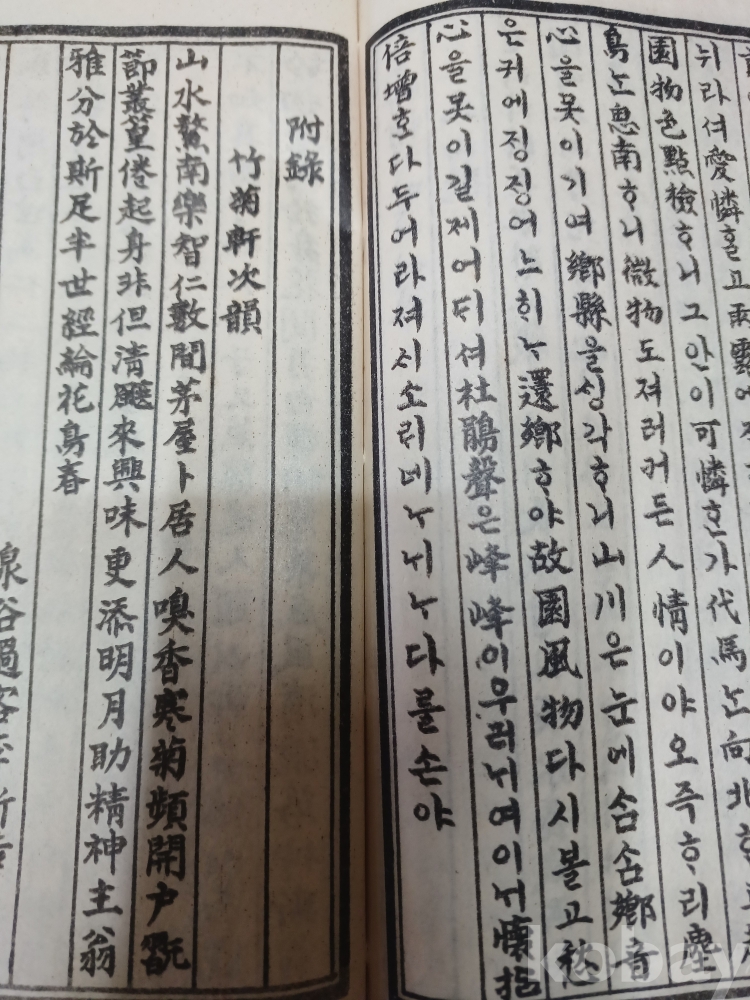 뉘라셔愛憐ᄒᆞᆯ고雨露에
園物色點檢ᄒᆞ니그안이可憐ᄒᆞᆫ가代馬ᄂᆞᆫ向北ᄒᆞ고
鳥ᄂᆞᆫ思南ᄒᆞ니微物도져러커든人情이야오즉ᄒᆞ리塵
心을못이기여鄕縣을ᄉᆡᆼ각ᄒᆞ니山川은눈에삼삼鄕音
은귀에징징어ᄂᆞ히ᄂᆞ還鄕ᄒᆞ야故園風物다시볼고愁
心을못이길제어ᄃᆡ셔杜鵑聲은峰峰이우러ᄂᆡ여이ᄂᆡ懷抱
倍增ᄒᆞ다두어라져시소ᄅᆡ네ᄂᆞᄂᆡᄂᆞ다를손야
附錄
竹菊軒次韻
山水鰲南樂智仁數間茅屋卜居人嗅香寒菊頻開户翫
節叢篁倦起身非但淸飇來興味更添明月助精神主翁
雅分於斯足半世經綸花鳥春
泉谷過客